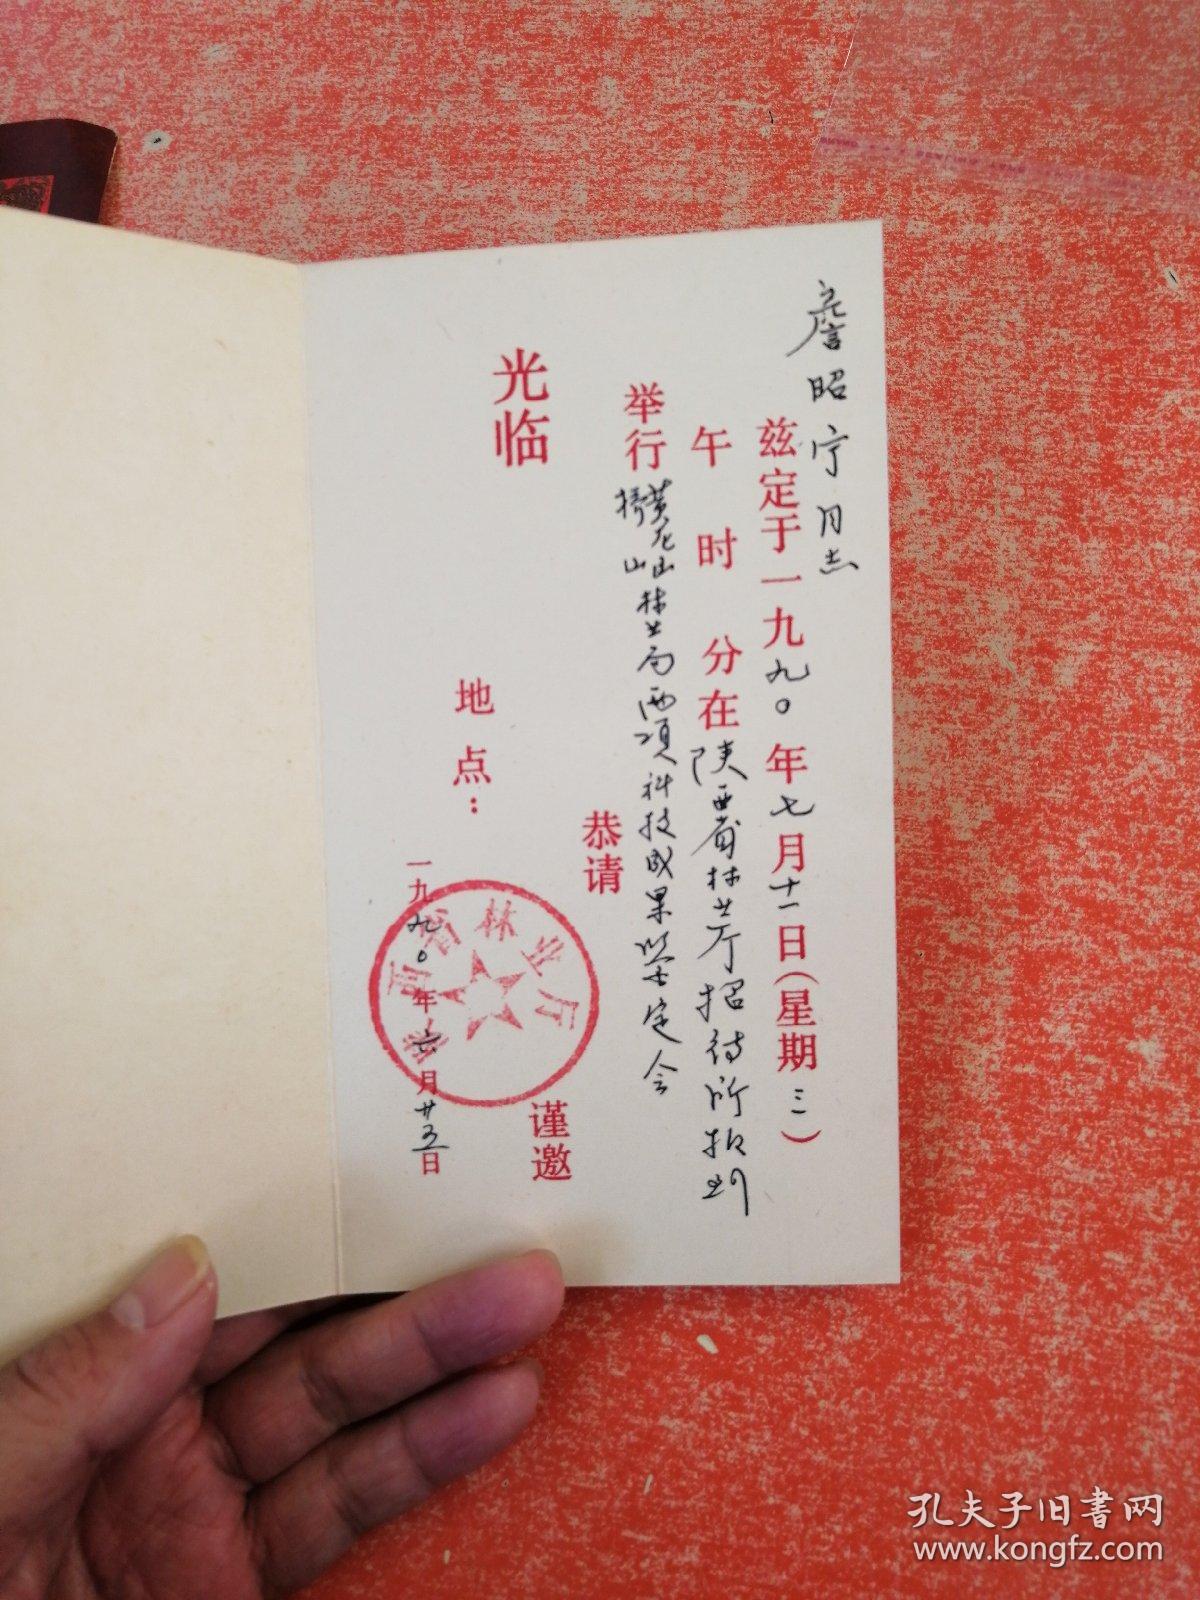 詹昭宁同志
兹定于一九九〇年七月十一日(星期三)
午 时 分在陕西省林业厅招待所报到
举行黄龙山桥山林业局两项科技成果鉴定会
恭请
光临
地点:
谨邀
一九九〇年六月廿五日
陕西省林业厅
孔夫子旧书网
www.kongfz.com